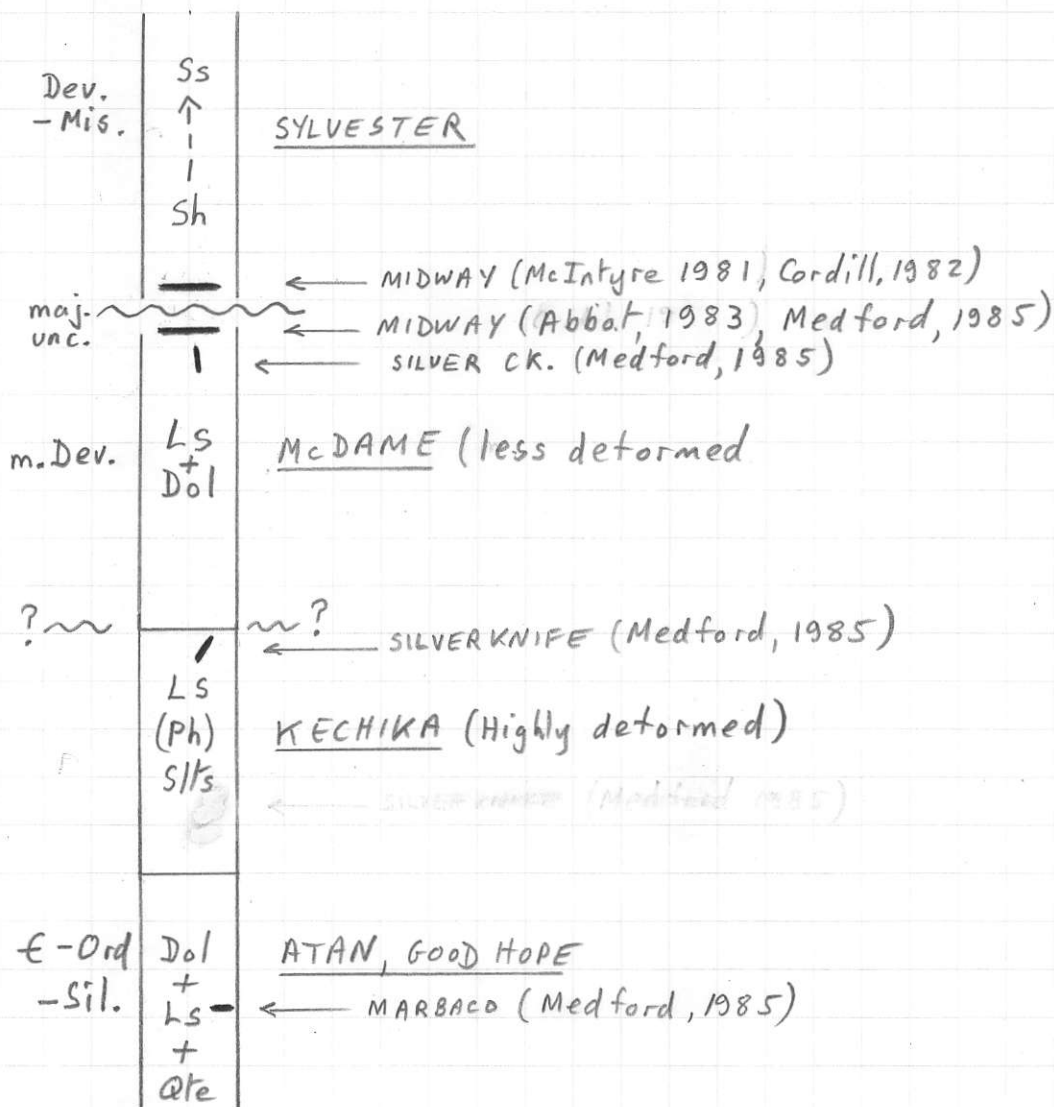 Ss
Dev.
- Mis.
SYLVESTER
Sh
MIDWAY (McIntyre 1981, Cordill, 1982)
maj.
unc.
MIDWAY (Abbot, 1983), Medford, 1985)
SILVER CK. (Medford, 1985)
m. Dev.
LS
+
Dol
McDAME (less deformed
? ?
SILVERKNIFE (Medford, 1985)
LS
(Ph)
Slts
KECHIKA (Highly deformed)
SILVERKNIFE (Medford 1985)
€-Ord
-Sil.
Dol
+
LS
+
Qte
ATAN, GOOD HOPE
MARBACO (Medford, 1985)